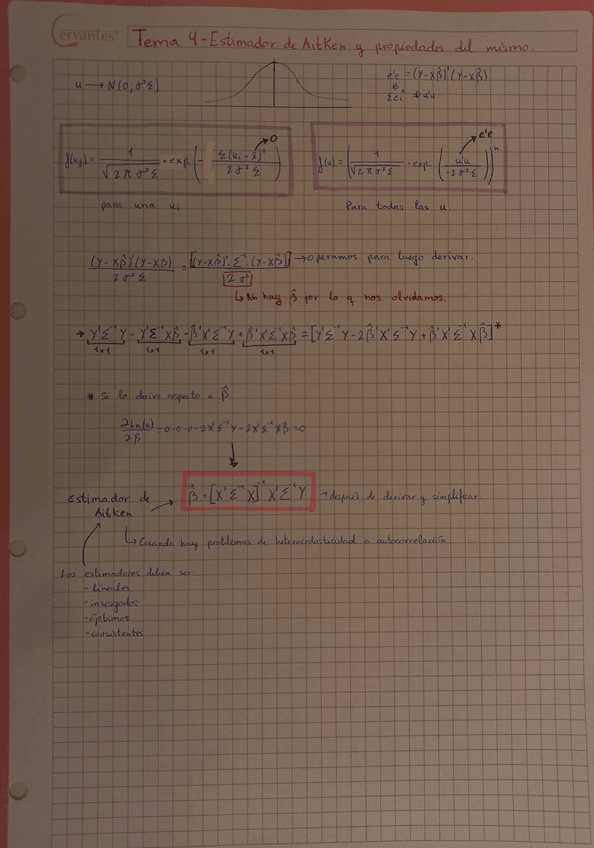 Cervantes
Tema 4-Estimador de Aitken y propiedades del mismo.
u → N(0; σ²Σ)
e'e = (Y-Xβ̂)'(Y-Xβ̂)
Σei²
f(ui) = 1/√(2πσ²Σ) · exp. (- Σ(ui - x̄)²/2σ²Σ) → 0
f(u) = (1/√(2πσ²Σ) · exp. (u'u/-2σ²Σ))ⁿ → e'e
para una ui
Para todas las u.
(Y-Xβ̂)'(Y-Xβ)/2σ²Σ = [(Y-Xβ̂)'·Σ⁻¹·(Y-Xβ̂)]/2σ² → Operamos para luego derivar.
↳ No hay β̂ por lo q nos olvidamos.
→ Y'Σ⁻¹Y - Y'Σ⁻¹Xβ̂ - β̂'X'Σ⁻¹Y + β̂'X'Σ⁻¹Xβ̂ = [Y'Σ⁻¹Y - 2β̂'X'Σ⁻¹Y + β̂'X'Σ⁻¹Xβ̂]*
1x1 1x1 1x1 1x1
* Si lo derivo respecto a β̂
∂Ln(u)/∂β̂ = 0-0-0-2X'Σ⁻¹Y-2X'Σ⁻¹Xβ̂=0
Estimador de Aitken → β̂ = [X'Σ⁻¹X]⁻¹X'Σ⁻¹Y → después de derivar y simplificar.
↳ Cuando hay problemas de heterocedasticidad o autocorrelación.
Los estimadores deben ser
- lineales
- insesgados
- óptimos
- consistentes